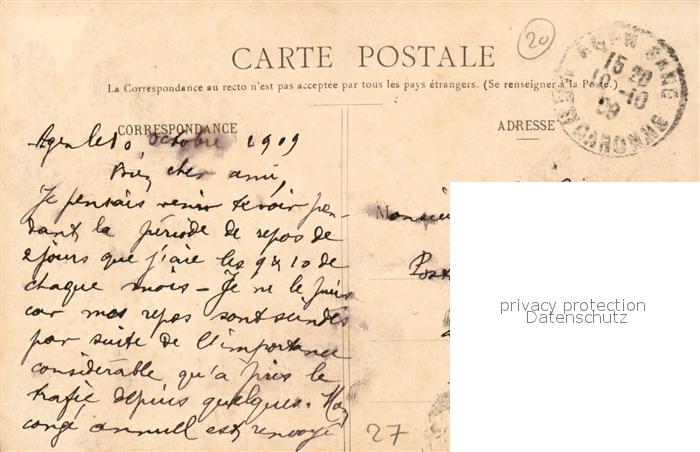 20
CARTE POSTALE
La Correspondance au recto n'est pas acceptée par tous les pays étrangers. (Se renseigner à la Poste.)
AGEN GARE
15 20
10 - 10
09
LOT-ET-GARONNE
CORRESPONDANCE
ADRESSE
Agen le 10 Octobre 1909
Bien cher ami,
Je pensais venir te voir pen-
dant la période de repos de
2 jours que j'aie les 9 & 10 de
chaque mois - Je ne le puis
car mes repos sont scindés
par suite de l'importance
considérable qu'a pris le
trafic depuis quelques.
congé annuel est renvoyé
Monsieu
Post
27
privacy protection
Datenschutz